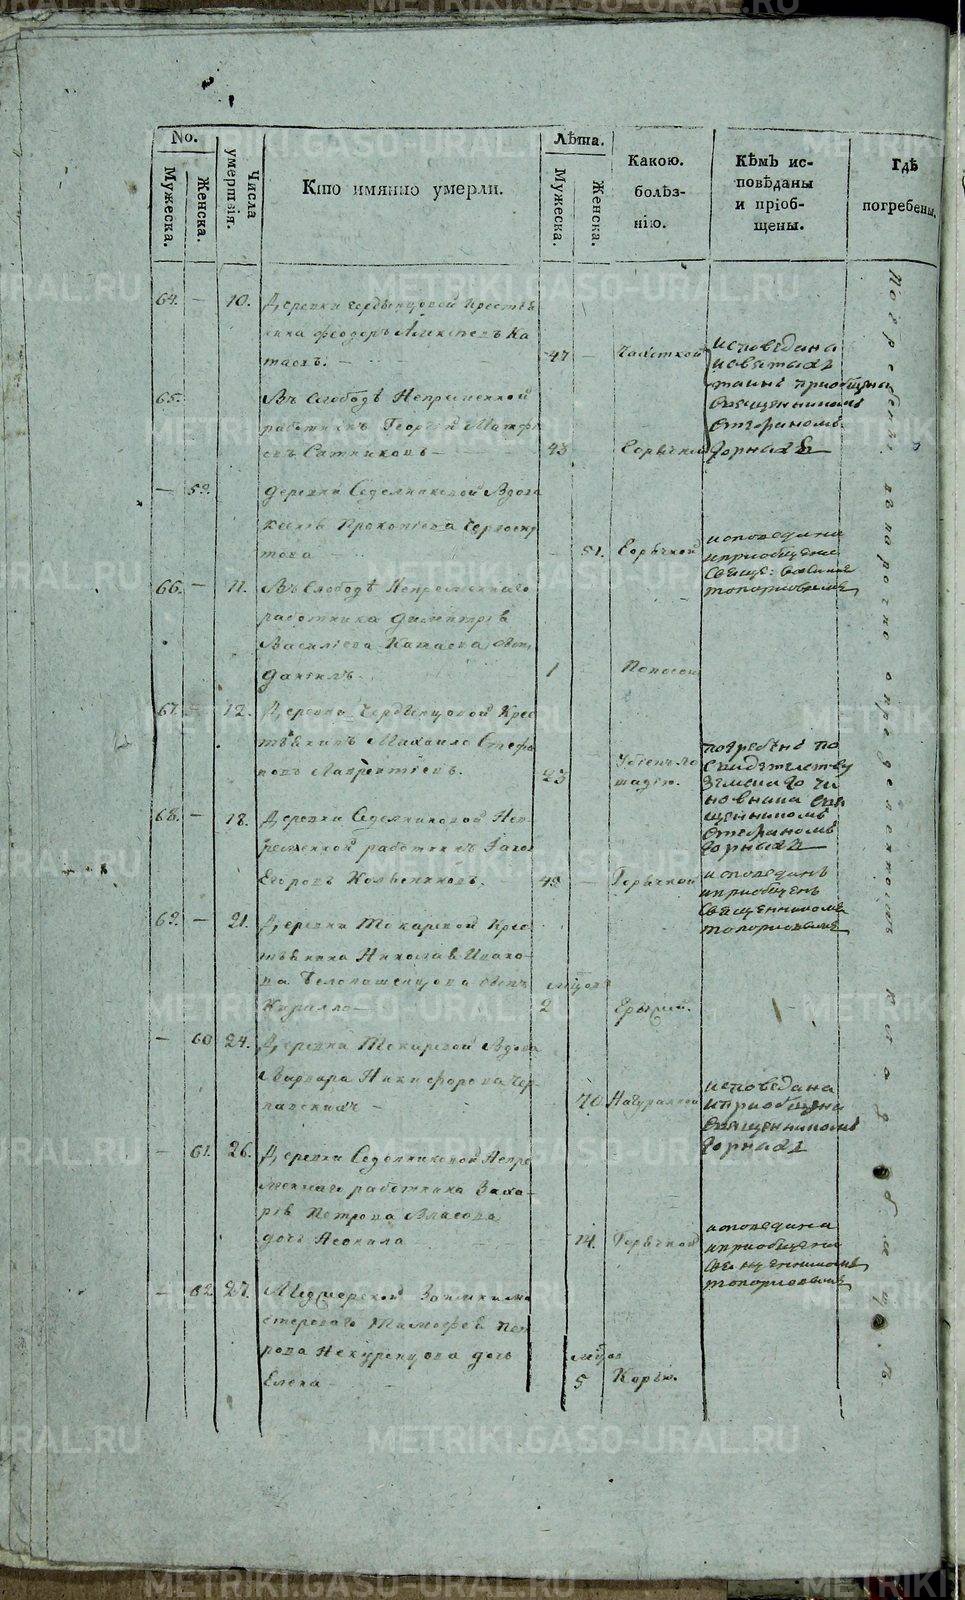 No.
Мужеска.
Женска.
Числа
умертвія.
Кто имянно умерли.
Лѣта.
Мужеска.
Женска.
Какою.
болѣз-
нію.
Кѣмъ ис-
повѣданы
и пріоб-
щены.
Гдѣ
погребены.
64. — 10. Деревни Чердынцовой Крестья
нина Феодоръ Алексѣевъ Ка
таевъ. —
47 — Чахоткой
исповѣдана
и святыхъ
таинъ приобщена
священникомъ
Стефаномъ
Горныхъ
65.
Въ Слободѣ Непременной
работникъ Георгій Матфѣ
евъ Сатниковъ —
43 Горячкой
— 59.
Деревни Седелниковой Вдова
Прокопіева
това —
— 51. Горячкой
исповедана
и приобщена
свяще:
Топорковымъ
66. — 11. Въ Слободѣ Непременнаго
работника Димитрія
Василіева Катаева сынъ
Даніилъ.
1 Поносом
67. 12. Деревни Чердынцовой Крес
тьянинъ Михайло Стефа
новъ Лаврентіевъ.
23 Убіенъ ло
шадью.
погребенъ по
свидѣтелству
Земскаго чи
новника свя
щенникомъ
Стефаномъ
Горныхъ
68. — 18. Деревни Седелниковой Неп
ременной работникъ
Егоровъ
49 — Горячкой
исповеданъ
и приобщенъ
Священникомъ
Топорковымъ
69. — 21. Деревни Токаревой Крес
тьянина Николая Ивано
ва сынъ
Кирилло —
мѣсяцовъ
2 Грыжей. —
— 60 24. Деревни Токаревой Вдова
Варвара Никифорова Чер
—
70 Натуралной
исповѣдана
и приобщена
священникомъ
Горныхъ
— 61. 26. Деревни Седелниковой Непре
меннаго работника Заха
рія Петрова Власова
дочь
14. Горячкой
исповедана
и приобщена
Священникомъ
Топорковымъ
— 62 27. Заимки ма
стероваго Тимофея Пет
рова дочь
Елена —
мѣсяцовъ
5 Корью.
Погребены въ нарочно определенномъ кладбищѣ.
METRIKI.GASO-URAL.RU